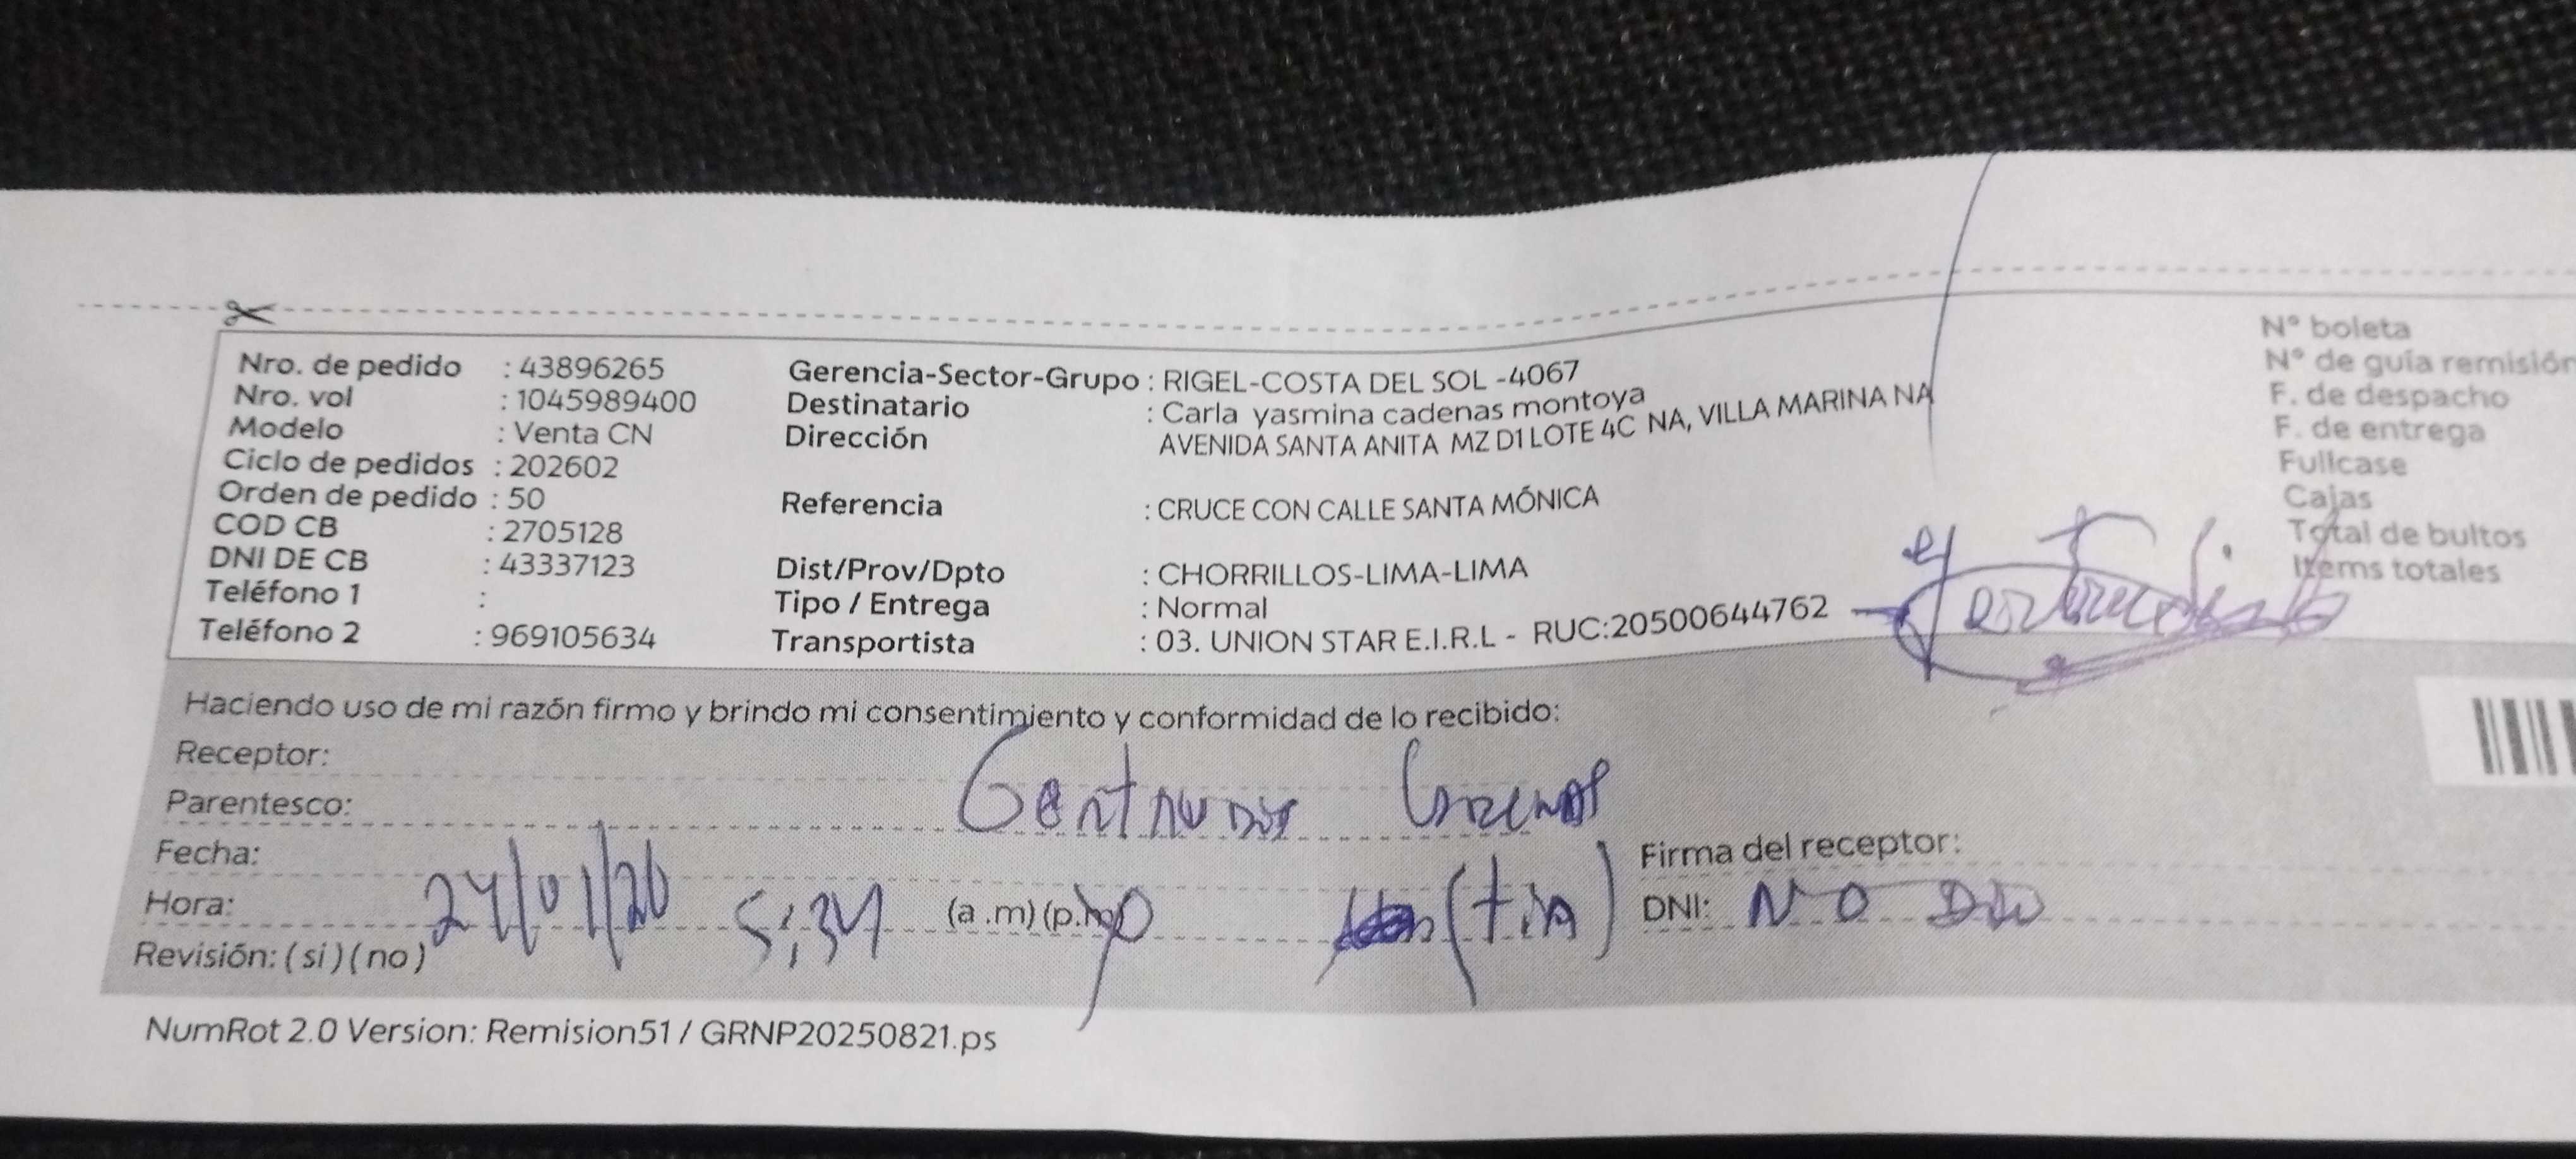 Nro. de pedido : 43896265
Nro. vol : 1045989400
Modelo : Venta CN
Ciclo de pedidos : 202602
Orden de pedido : 50
COD CB : 2705128
DNI DE CB : 43337123
Teléfono 1 :
Teléfono 2 : 969105634
Gerencia-Sector-Grupo : RIGEL-COSTA DEL SOL -4067
Destinatario : Carla yasmina cadenas montoya
Dirección AVENIDA SANTA ANITA MZ D1 LOTE 4C NA, VILLA MARINA NA
Referencia : CRUCE CON CALLE SANTA MÓNICA
Dist/Prov/Dpto : CHORRILLOS-LIMA-LIMA
Tipo / Entrega : Normal
Transportista : 03. UNION STAR E.I.R.L - RUC:20500644762
N° boleta
N° de guía remisión
F. de despacho
F. de entrega
Fullcase
Cajas
Total de bultos
Items totales
Haciendo uso de mi razón firmo y brindo mi consentimiento y conformidad de lo recibido:
Receptor:
Parentesco:
Fecha:
Hora: 5:34 (a.m) (p.m)
(tia)
Firma del receptor:
DNI: NO DIO
Revisión: (si) (no)
NumRot 2.0 Version: Remision51 / GRNP20250821.ps